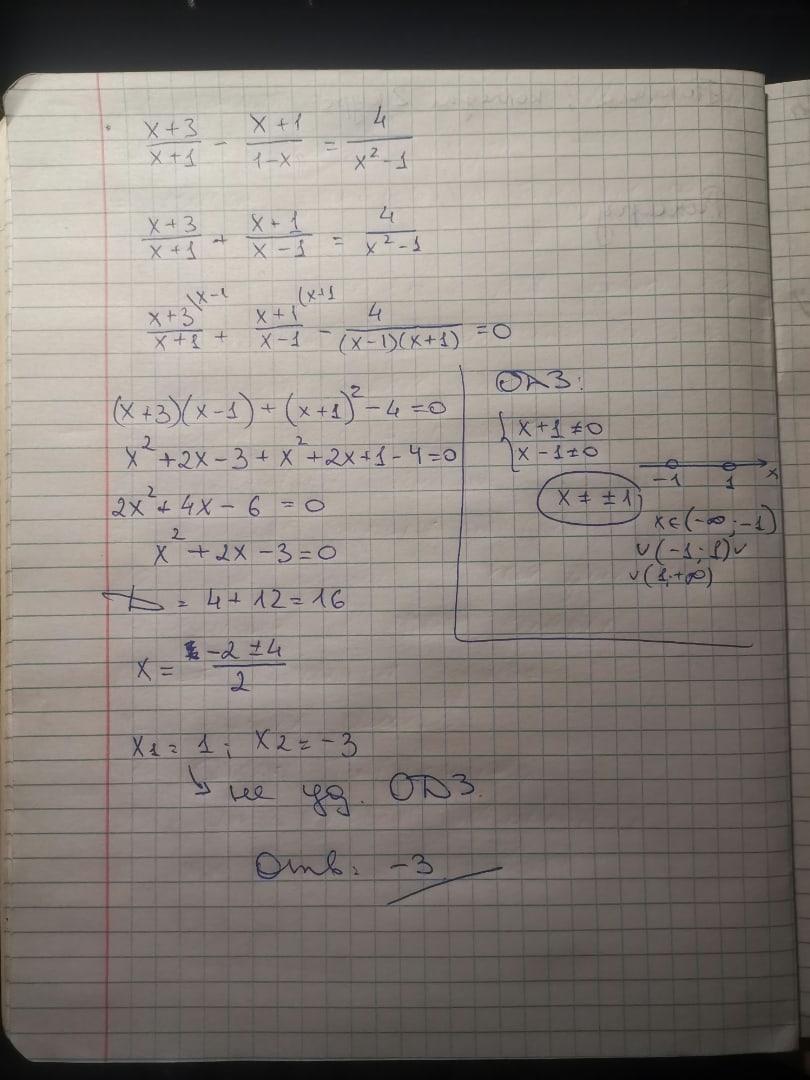 (x+3)/(x+1) - (x+1)/(1-x) = 4/(x²-1)
(x+3)/(x+1) + (x+1)/(x-1) = 4/(x²-1)
(x+3)/(x+1) \x-1 + (x+1)/(x-1) (x+1 - 4/((x-1)(x+1)) = 0
(x+3)(x-1) + (x+1)² - 4 = 0
x² + 2x - 3 + x² + 2x + 1 - 4 = 0
2x² + 4x - 6 = 0
x² + 2x - 3 = 0
D = 4 + 12 = 16
x = (-2 ± 4)/2
x1 = 1; x2 = -3
↳ не уд. ОДЗ.
Отв: -3
ОДЗ:
{ x+1 ≠ 0
x-1 ≠ 0
-1 1 x
x ≠ ±1;
x∈(-∞;-1)
∪(-1;1)∪
∪(1;+∞)